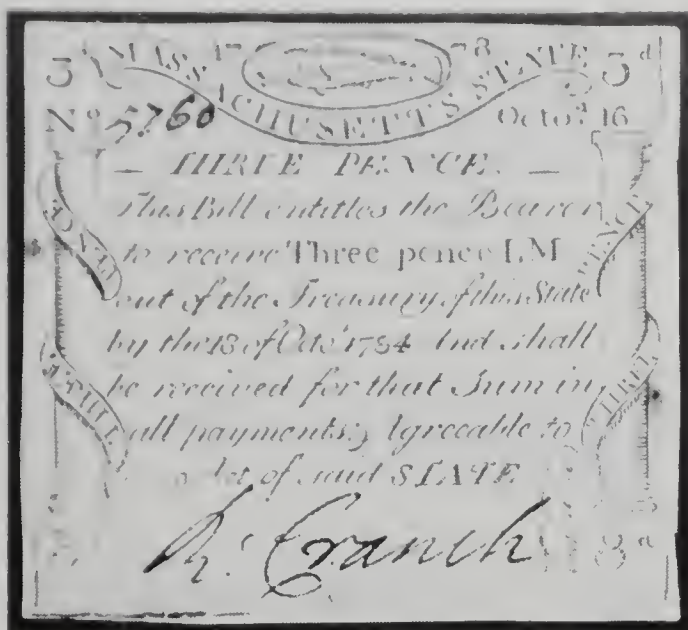 3d 17 78 3d
MASSACHUSETTS STATE
No 5760 Octor. 16
— THREE PENCE. —
This Bill entitles the Bearer
to receive Three pence LM
out of the Treasury of this State
by the 18 of Octr. 1784 And shall
be received for that Sum in
all payments, Agreeable to
Act of said STATE
PENCE
THREE
R. Cranch
3d